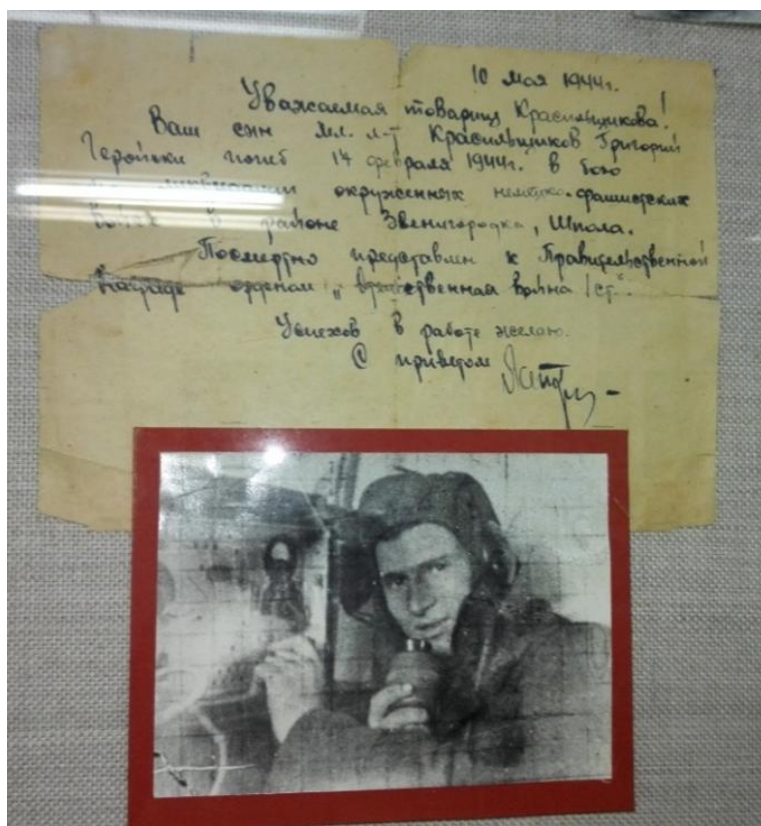 10 мая 1944г.
Уважаемая товарищ Красильщикова!
Ваш сын мл. л-т Красильщиков Григорий
Геройски погиб 14 февраля 1944г. в бою
по ликвидации окруженных немецко-фашистских
войск в районе Звенигородка, Шпола.
Посмертно представлен к Правительственной
награде орденом „Отечественная война 1 ст."
Успехов в работе желаю.
С приветом